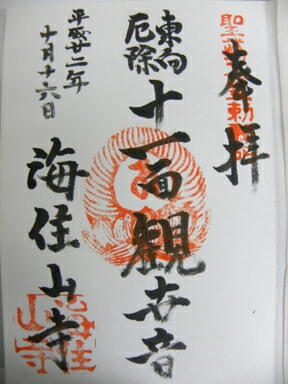 奉拝
東向
厄除
十一面観世音
海住山寺
平成廿二年
十月十六日